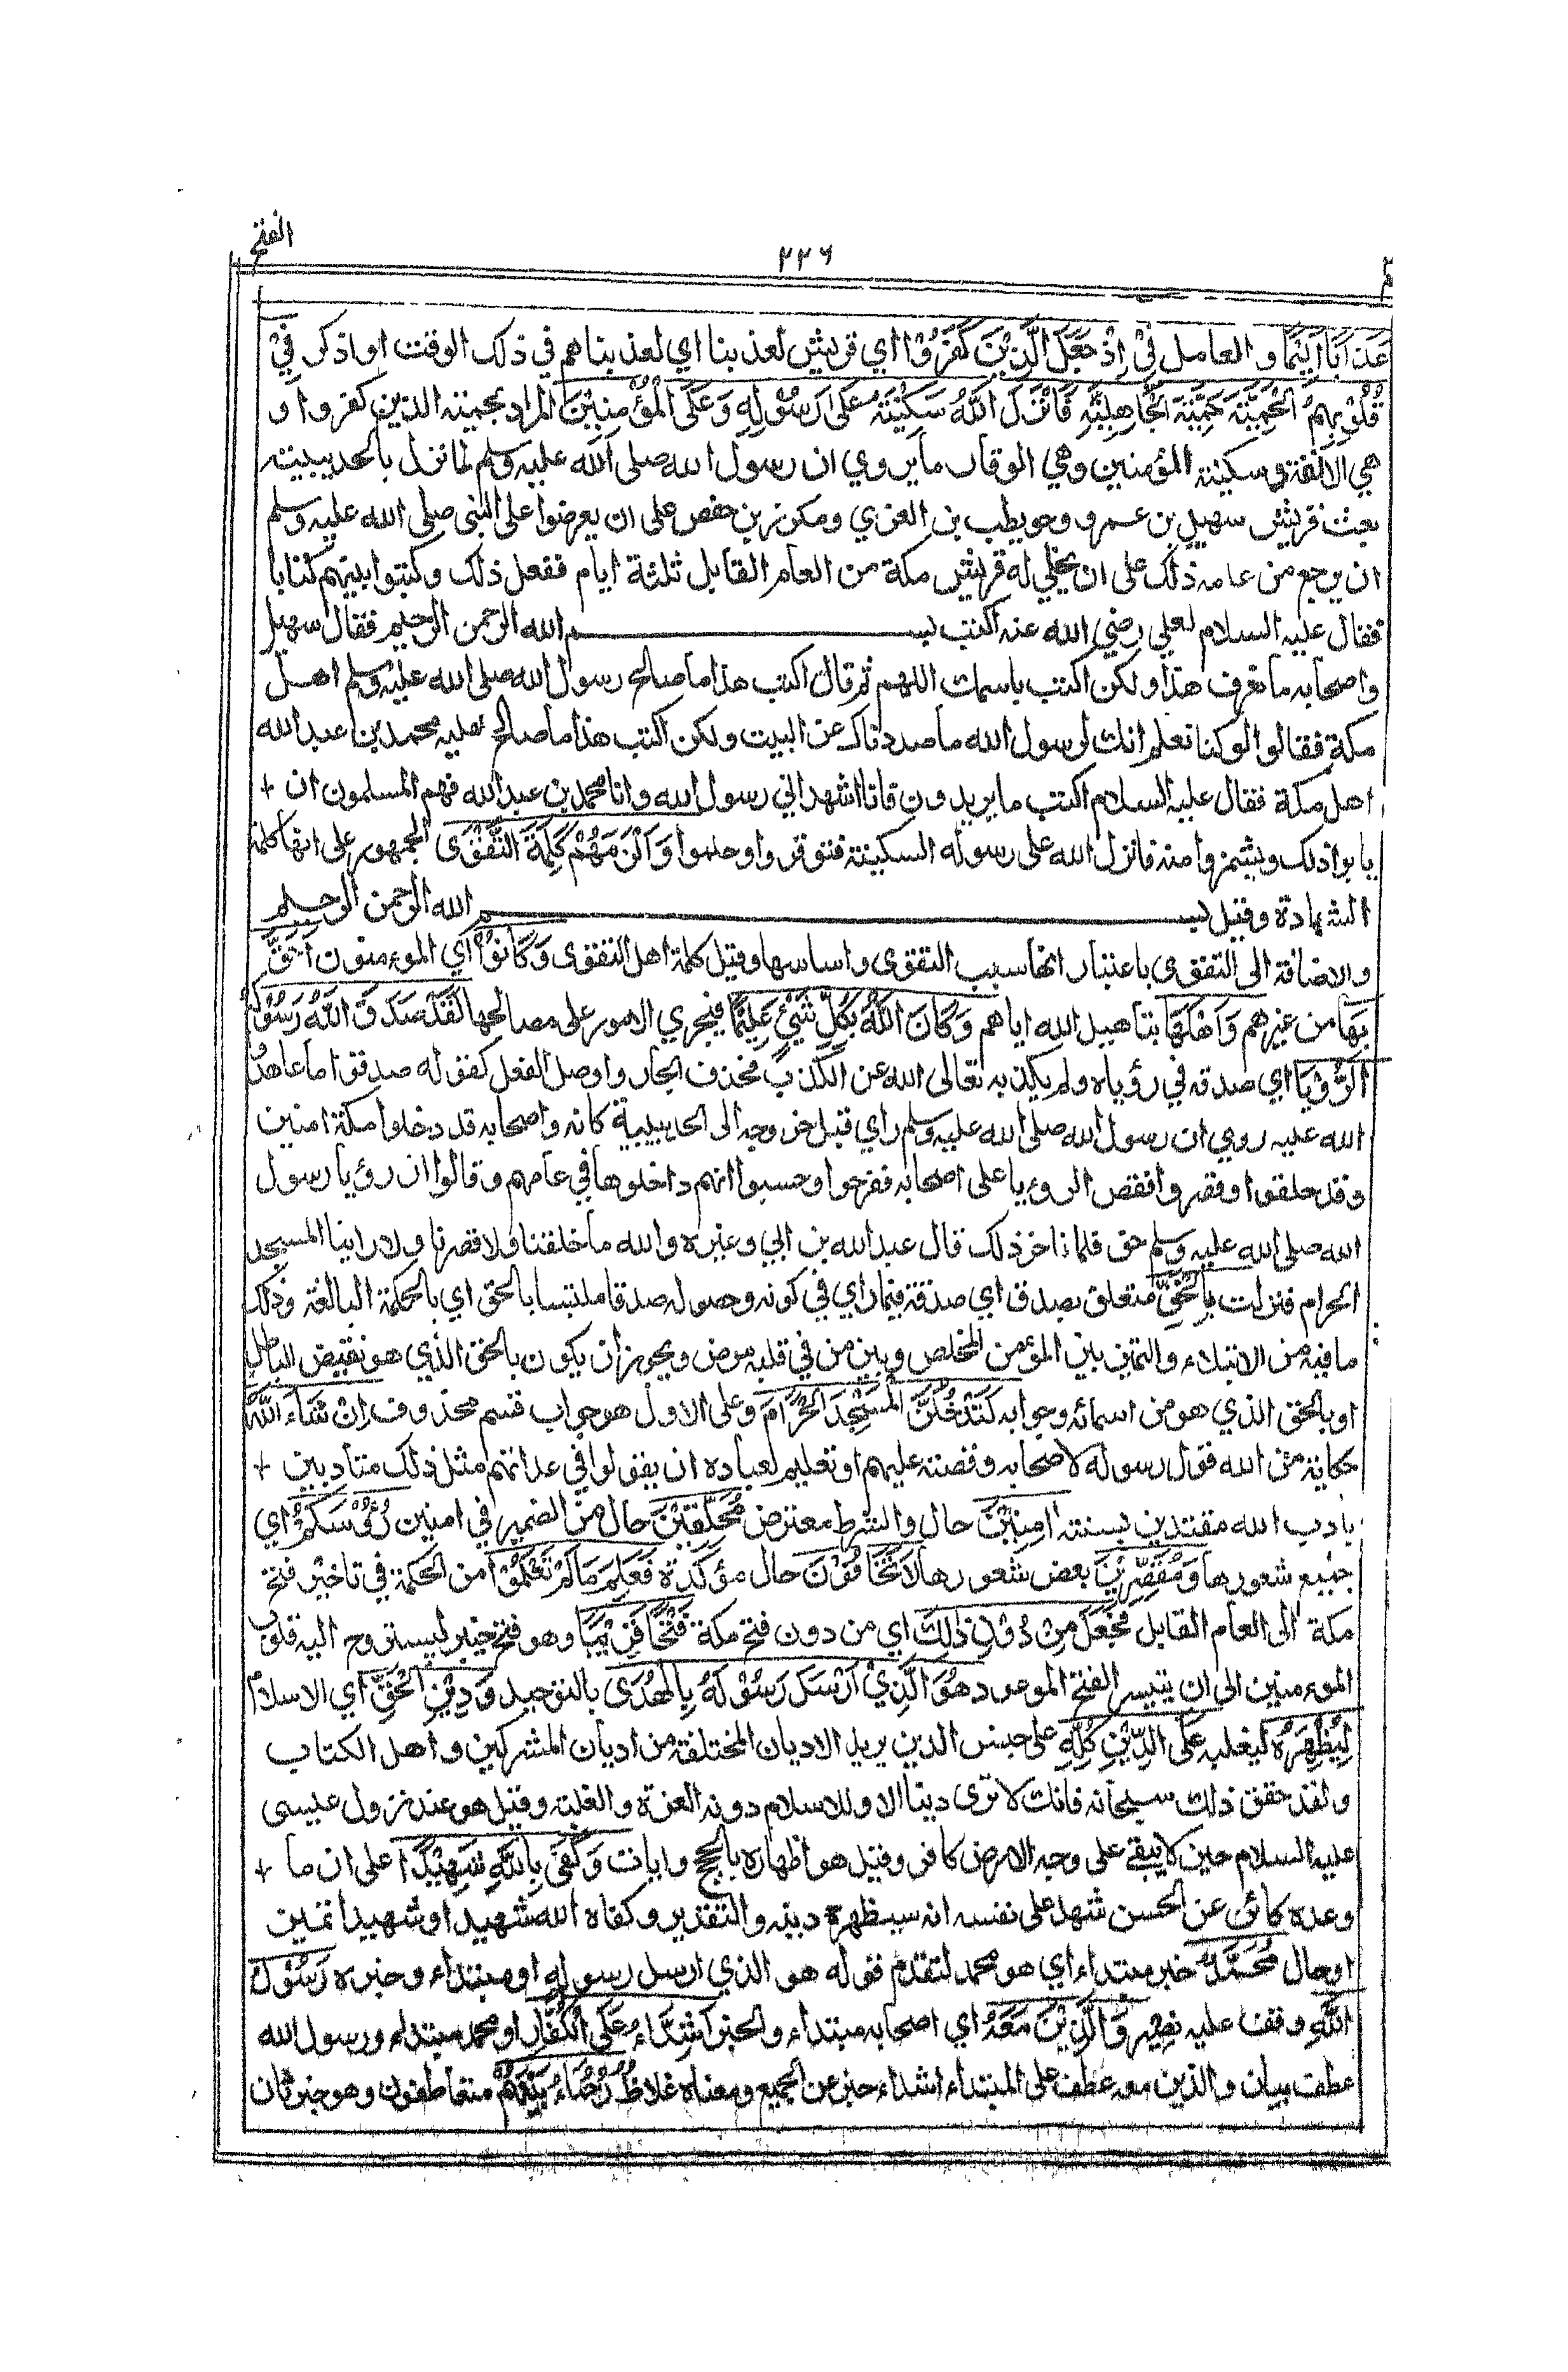 الفتح
٢٢٦
عَذَابًا اَلِيْمًا و العامل في اِذْ جَعَلَ الَّذِيْنَ كَفَرُوْا اي قريش لعذبنا اي لعذبناهم في ذلك الوقت او اذكر فِيْ
قُلُوْبِهِمُ الْحَمِيَّةَ حَمِيَّةَ الْجَاهِلِيَّةِ فَاَنْزَلَ اللّٰهُ سَكِيْنَتَهٗ عَلٰى رَسُوْلِهٖ وَعَلَى الْمُؤْمِنِيْنَ المراد بحمية الذين كفروا و
هي الانفة وسكينة المؤمنين وهي الوقار ما يروي ان رسول الله صلى الله عليه وسلم لما نزل بالحديبية
بعث قريش سهيل بن عمرو وحويطب بن العزي ومكرز بن حفص على ان يعرضوا على النبي صلى الله عليه وسلم
ان يرجع من عامه ذلك على ان يخلي له قريش مكة من العام القابل ثلثة ايام ففعل ذلك وكتبوا بينهم كتابا
فقال عليه السلام لعلي رضي الله عنه اكتب بسم الله الرحمن الرحيم فقال سهيل
واصحابه ما نعرف هذا ولكن اكتب باسمك اللهم ثم قال اكتب هذا ما صالح رسول الله صلى الله عليه وسلم اهل
مكة فقالوا لو كنا نعلم انك لرسول الله ما صددناك عن البيت ولكن اكتب هذا ما صالح عليه محمد بن عبد الله
اهل مكة فقال عليه السلام اكتب ما يريدون فانا اشهد اني رسول الله وانا محمد بن عبد الله فهم المسلمون ان
يابوا ذلك ويشمزوا منه فانزل الله على رسوله السكينة فتوقروا وحلموا وَاَلْزَمَهُمْ كَلِمَةَ التَّقْوٰى الجمهور على انها كلمة
الشهادة وقيل بسم الله الرحمن الرحيم
والاضافة الى التقوى باعتبار انها سبب التقوى واساسها وقيل كلمة اهل التقوى وَكَانُوْا اي الموءمنون اَحَقَّ
بِهَا من غيرهم وَاَهْلَهَا بتاهيل الله اياهم وَكَانَ اللّٰهُ بِكُلِّ شَيْئٍ عَلِيْمًا فيجري الامور على مصالحها لَقَدْ صَدَقَ اللّٰهُ رَسُوْلَهُ
الرُّؤْيَا اي صدقه في رؤياه ولم يكذبه تعالى الله عن الكذب فحذف الجار واوصل الفعل كقوله صدقوا ما عاهدوا
الله عليه روي ان رسول الله صلى الله عليه وسلم راي قبل خروجه الى الحديبية كانه واصحابه قد دخلوا مكة امنين
وقد حلقوا وقصروا فقص الروءيا على اصحابه ففرحوا وحسبوا انهم داخلوها في عامهم وقالوا ان رؤيا رسول
الله صلى الله عليه وسلم حق فلما تاخر ذلك قال عبد الله بن ابي وغيره والله ما حلقنا ولا قصرنا ولا راينا المسجد
الحرام فنزلت بِالْحَقِّ متعلق بصدق اي صدقه فيما راي في كونه وحصوله صدقا ملتبسا بالحق اي بالحكمة البالغة وذلك
ما فيه من الابتلاء والتميز بين المؤمن المخلص وبين من في قلبه مرض ويجوز ان يكون بالحق الذي هو نقيض الباطل
او بالحق الذي هو من اسمائه وجوابه لَتَدْخُلُنَّ الْمَسْجِدَ الْحَرَامَ وعلى الاول هو جواب قسم محذوف اِنْ شَاءَ اللّٰهُ
حكاية من الله قول رسوله لاصحابه وقصته عليهم او تعليم لعباده ان يقولوا في عداتهم مثل ذلك متادبين
بادب الله مقتدين بسنته اٰمِنِيْنَ حال والشرط معترض مُحَلِّقِيْنَ حال من الضمير في امنين رُءُوْسَكُمْ اي
جميع شعورها وَمُقَصِّرِيْنَ بعض شعورها لَا تَخَافُوْنَ حال مؤكدة فَعَلِمَ مَا لَمْ تَعْلَمُوْا من الحكمة في تاخير فتح
مكة الى العام القابل فَجَعَلَ مِنْ دُوْنِ ذٰلِكَ اي من دون فتح مكة فَتْحًا قَرِيْبًا وهو فتح خيبر ليستروح اليه قلوب
الموءمنين الى ان يتيسر الفتح الموعود هُوَ الَّذِيْ اَرْسَلَ رَسُوْلَهٗ بِالْهُدٰى بالتوحيد وَدِيْنِ الْحَقِّ اي الاسلام
لِيُظْهِرَهٗ ليغلبه عَلَى الدِّيْنِ كُلِّهٖ على جنس الدين يريد الاديان المختلفة من اديان المشركين واهل الكتاب
ولقد حقق ذلك سبحانه فانك لا ترى دينا الا وللاسلام دونه العزة والغلبة وقيل هو عند نزول عيسى
عليه السلام حين لا يبقى على وجه الارض كافر وقيل هو اظهاره بالحجج وايات وَكَفٰى بِاللّٰهِ شَهِيْدًا على ان ما
وعده كائن عن الحسن شهد على نفسه انه سيظهره دينه والتقدير وكفاه الله شهيدا وشهيدا تميين
او حال مُحَمَّدٌ خبر مبتداء اي هو محمد لتقدم قوله هو الذي ارسل رسوله او مبتداء وخبره رَسُوْلُ
اللّٰهِ وقف عليه نصير وَالَّذِيْنَ مَعَهٗ اي اصحابه مبتداء والخبر اَشِدَّاءُ عَلَى الْكُفَّارِ او محمد مبتداء ورسول الله
عطف بيان والذين معه عطف على المبتداء اشداء خبر عن الجميع ومعناه غلاظ رُحَمَاءُ بَيْنَهُمْ متعاطفون وهو خبر ثان